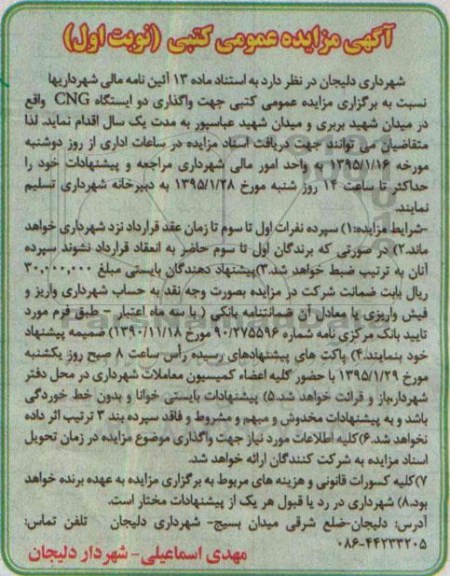 آگهی مزایده عمومی کتبی (نوبت اول)
شهرداری دلیجان در نظر دارد به استناد ماده ۱۳ آئین نامه مالی شهرداریها
نسبت به برگزاری مزایده عمومی کتبی جهت واگذاری دو ایستگاه CNG واقع
در میدان شهید بربری و میدان شهید عباسپور به مدت یک سال اقدام نماید. لذا
متقاضیان می توانند جهت دریافت اسناد مزایده در ساعات اداری از روز دوشنبه
مورخه ۱۳۹۵/۱/۱۶ به واحد امور مالی شهرداری مراجعه و پیشنهادات خود را
حداکثر تا ساعت ۱۴ روز شنبه مورخ ۱۳۹۵/۱/۲۸ به دبیرخانه شهرداری تسلیم
نمایند.
-شرایط مزایده:۱) سپرده نفرات اول تا سوم تا زمان عقد قرارداد نزد شهرداری خواهد
ماند.۲) در صورتی که برندگان اول تا سوم حاضر به انعقاد قرارداد نشوند سپرده
آنان به ترتیب ضبط خواهد شد.۳)پیشنهاد دهندگان بایستی مبلغ ۳۰,۰۰۰,۰۰۰
ریال بابت ضمانت شرکت در مزایده بصورت وجه نقد به حساب شهرداری واریز و
فیش واریزی یا معادل آن ضمانتنامه بانکی ( با سه ماه اعتبار - طبق فرم مورد
تایید بانک مرکزی نامه شماره ۹۰/۲۷۵۵۹۶ مورخ ۱۳۹۰/۱۱/۱۸) ضمیمه پیشنهاد
خود بنمایند.۴) پاکت های پیشنهادهای رسیده رأس ساعت ۸ صبح روز یکشنبه
مورخ ۱۳۹۵/۱/۲۹ با حضور کلیه اعضاء کمیسیون معاملات شهرداری در محل دفتر
شهردار،باز و قرائت خواهد شد.۵) پیشنهادات بایستی خوانا و بدون خط خوردگی
باشد و به پیشنهادات مخدوش و مبهم و مشروط و فاقد سپرده بند ۳ ترتیب اثر داده
نخواهد شد.۶)کلیه اطلاعات مورد نیاز جهت واگذاری موضوع مزایده در زمان تحویل
اسناد مزایده به شرکت کنندگان ارائه خواهد شد.
۷)کلیه کسورات قانونی و هزینه های مربوط به برگزاری مزایده به عهده برنده خواهد
بود.۸) شهرداری در رد یا قبول هر یک از پیشنهادات مختار است.
آدرس: دلیجان-ضلع شرقی میدان بسیج- شهرداری دلیجان تلفن تماس:
۰۸۶-۴۴۲۳۳۲۰۵
مهدی اسماعیلی- شهردار دلیجان